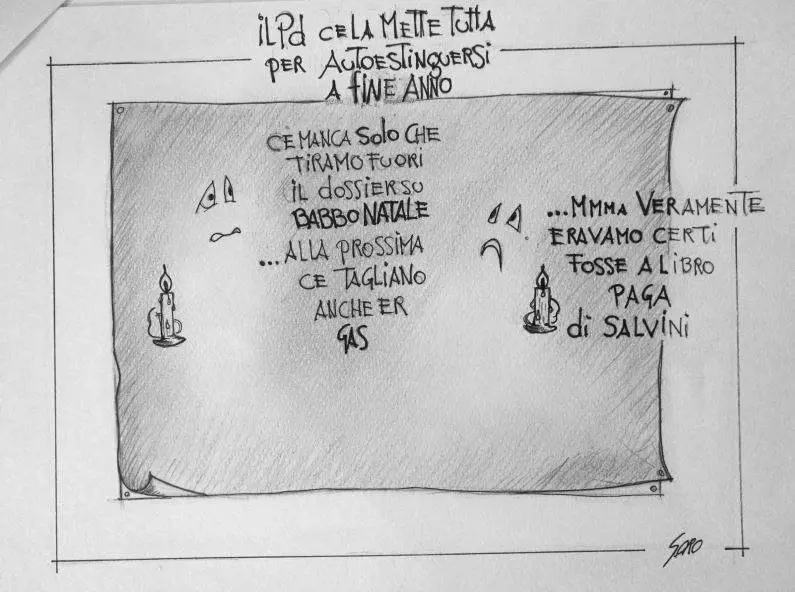 iL Pd CE LA METTE TUTTA
PER AUTOESTINGUERSI
A FINE ANNO
CE MANCA SOLO CHE
TIRAMO FUORI
IL dOSSIER SU
BABBO NATALE
...ALLA PROSSIMA
CE TAGLIANO
ANCHE ER
GAS
...MMMA VERAMENTE
ERAVAMO CERTI
FOSSE A LiBRO
PAGA
di SALViNi